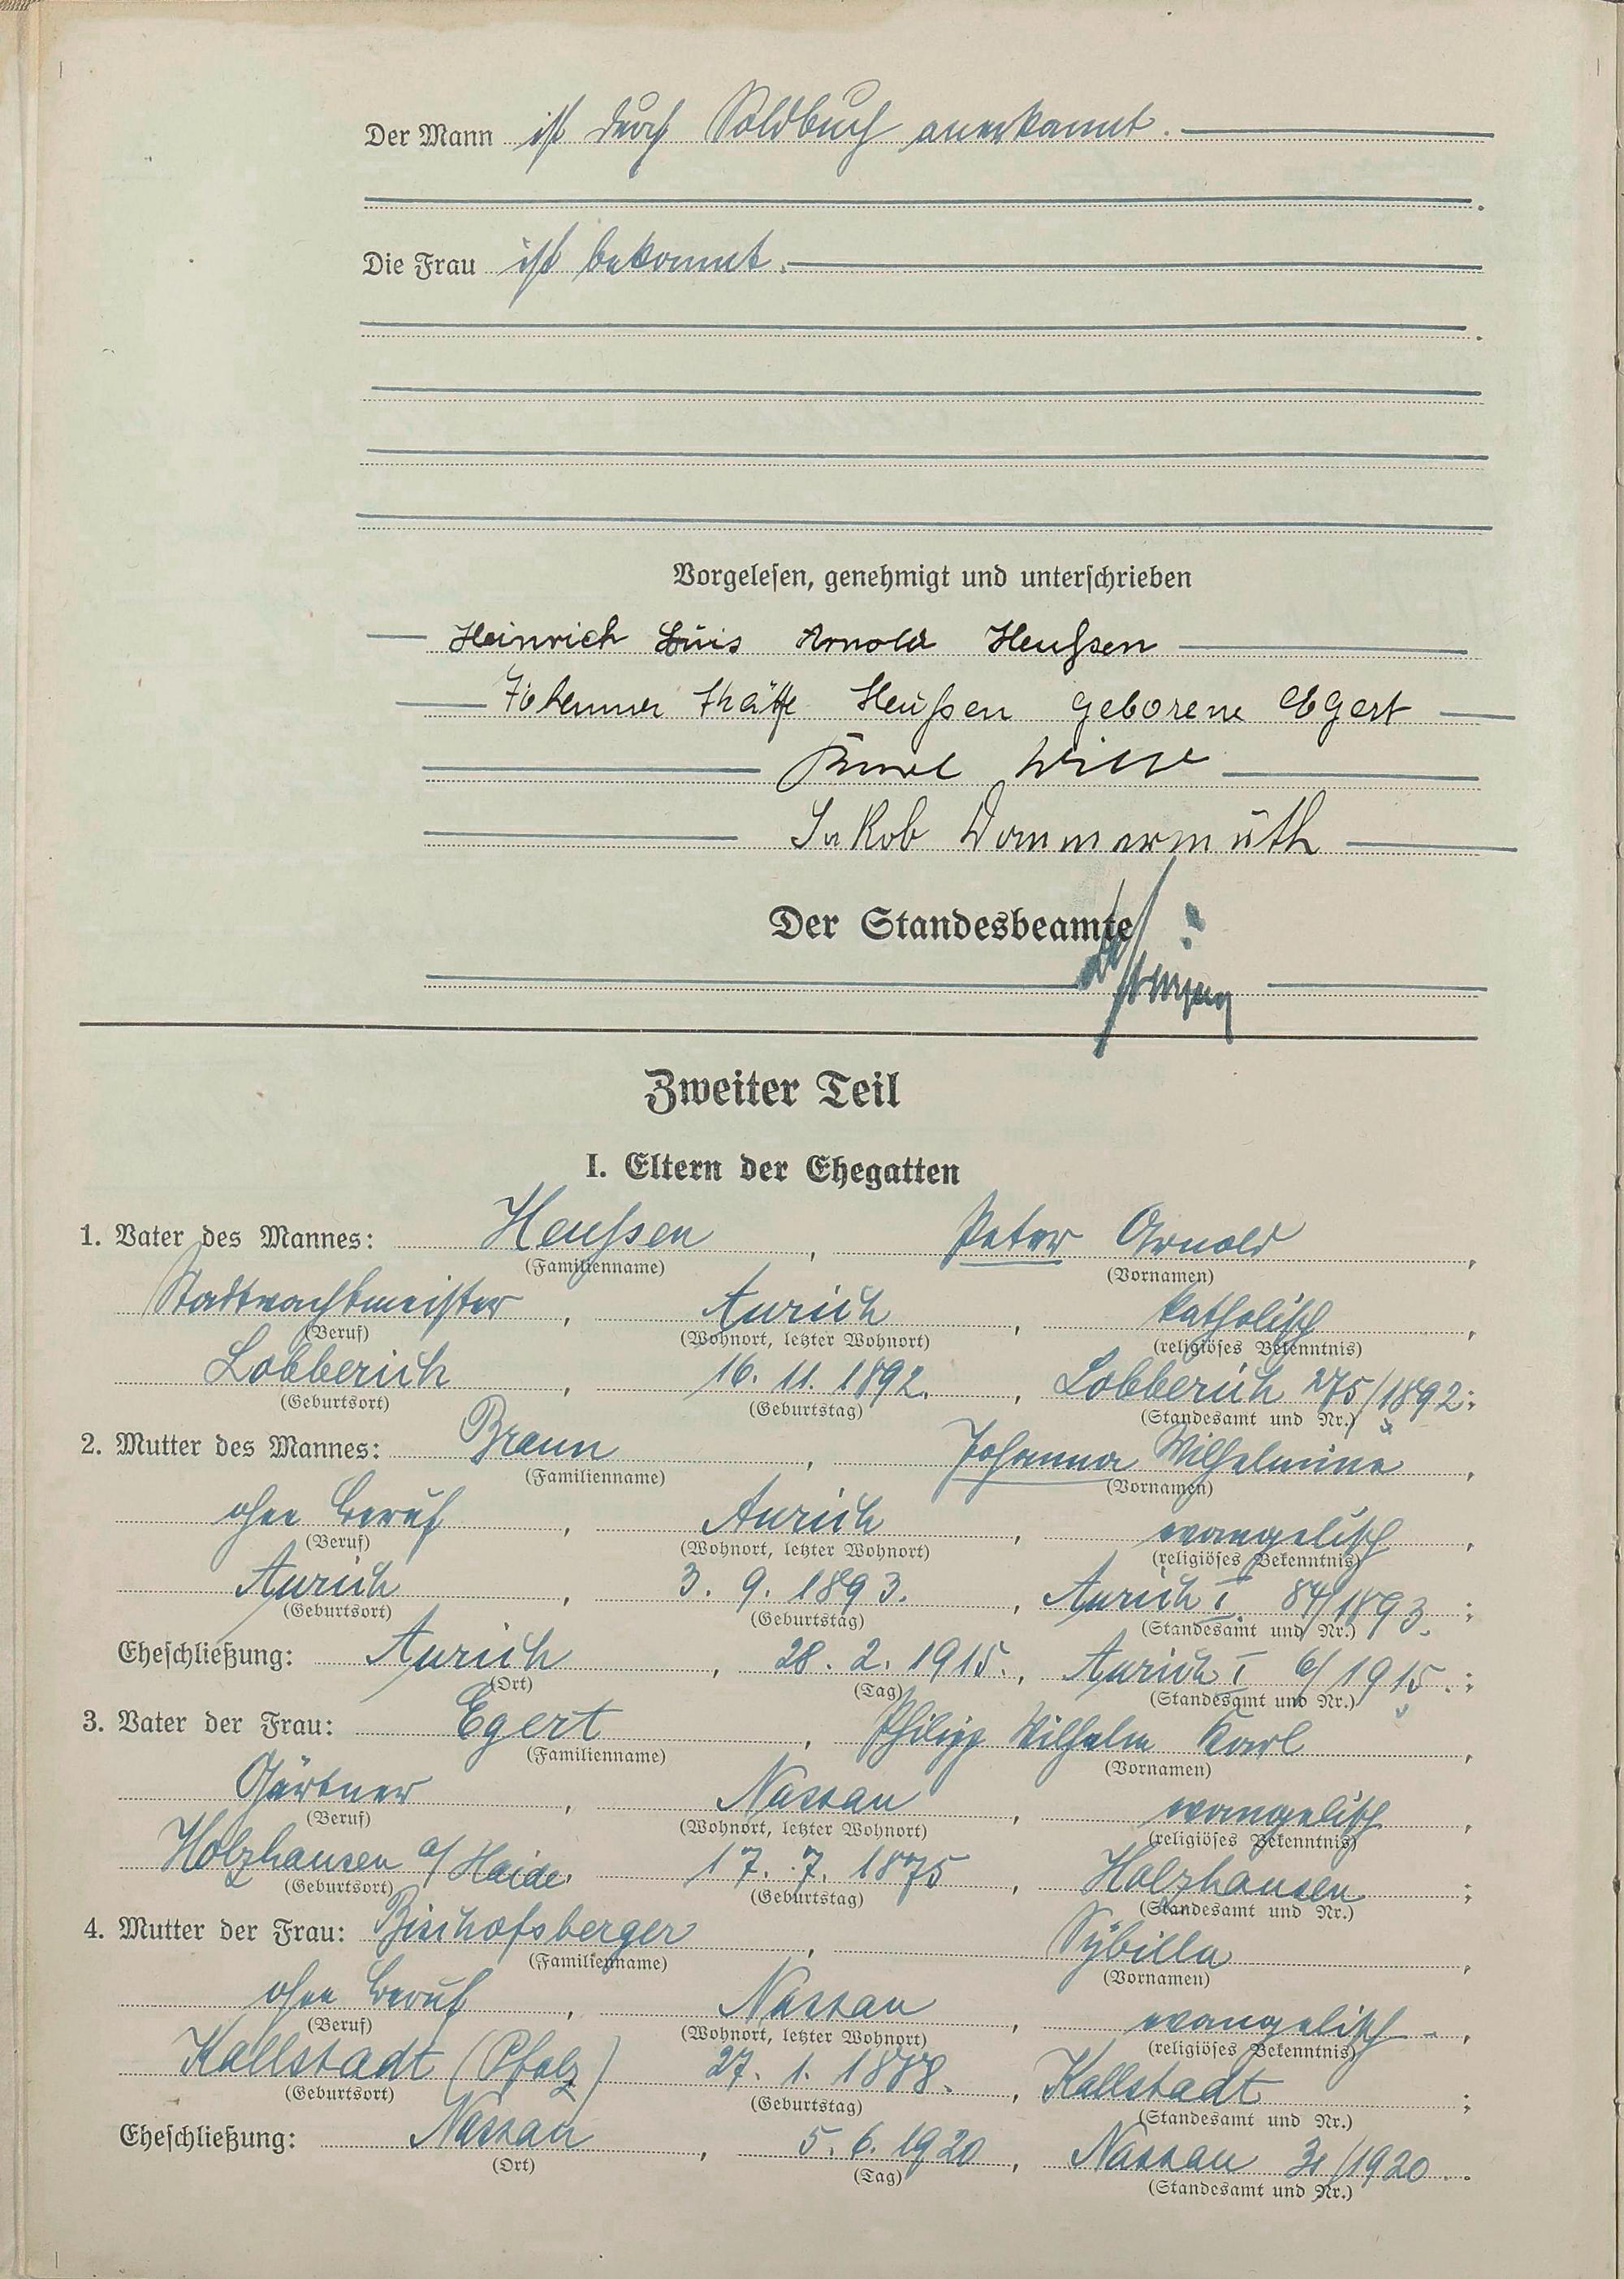 Der Mann ist durch Soldbuch anerkannt.
Die Frau ist bekannt.
Vorgelesen, genehmigt und unterschrieben
Heinrich Luis Arnold Heußen
Heußen geborene Egert
Jakob Dommermuth
Der Standesbeamte
Zweiter Teil
I. Eltern der Ehegatten
1. Vater des Mannes: Heußen, Peter Arnold,
(Familienname) (Vornamen)
Stadtwachtmeister, Aurich, katholisch,
(Beruf) (Wohnort, letzter Wohnort) (religiöses Bekenntnis)
Lobberich, 16. 11. 1892., Lobberich 275/1892;
(Geburtsort) (Geburtstag) (Standesamt und Nr.)
2. Mutter des Mannes: Braun, Johanna Wilhelmine,
(Familienname) (Vornamen)
ohne Beruf, Aurich, evangelisch,
(Beruf) (Wohnort, letzter Wohnort) (religiöses Bekenntnis)
Aurich, 3. 9. 1893., Aurich I 84/1893.;
(Geburtsort) (Geburtstag) (Standesamt und Nr.)
Eheschließung: Aurich, 28. 2. 1915., Aurich I 6/1915.;
(Ort) (Tag) (Standesamt und Nr.)
3. Vater der Frau: Egert, Philipp Wilhelm Karl,
(Familienname) (Vornamen)
Gärtner, Nassau, evangelisch,
(Beruf) (Wohnort, letzter Wohnort) (religiöses Bekenntnis)
Holzhausen a/Haide, 17. 7. 1875, Holzhausen;
(Geburtsort) (Geburtstag) (Standesamt und Nr.)
4. Mutter der Frau: Bischofsberger, Sybilla,
(Familienname) (Vornamen)
ohne Beruf, Nassau, evangelisch,
(Beruf) (Wohnort, letzter Wohnort) (religiöses Bekenntnis)
Kallstadt (Pfalz) 27. 1. 1888., Kallstadt;
(Geburtsort) (Geburtstag) (Standesamt und Nr.)
Eheschließung: Nassau, 5. 6. 1920, Nassau 31/1920.
(Ort) (Tag) (Standesamt und Nr.)